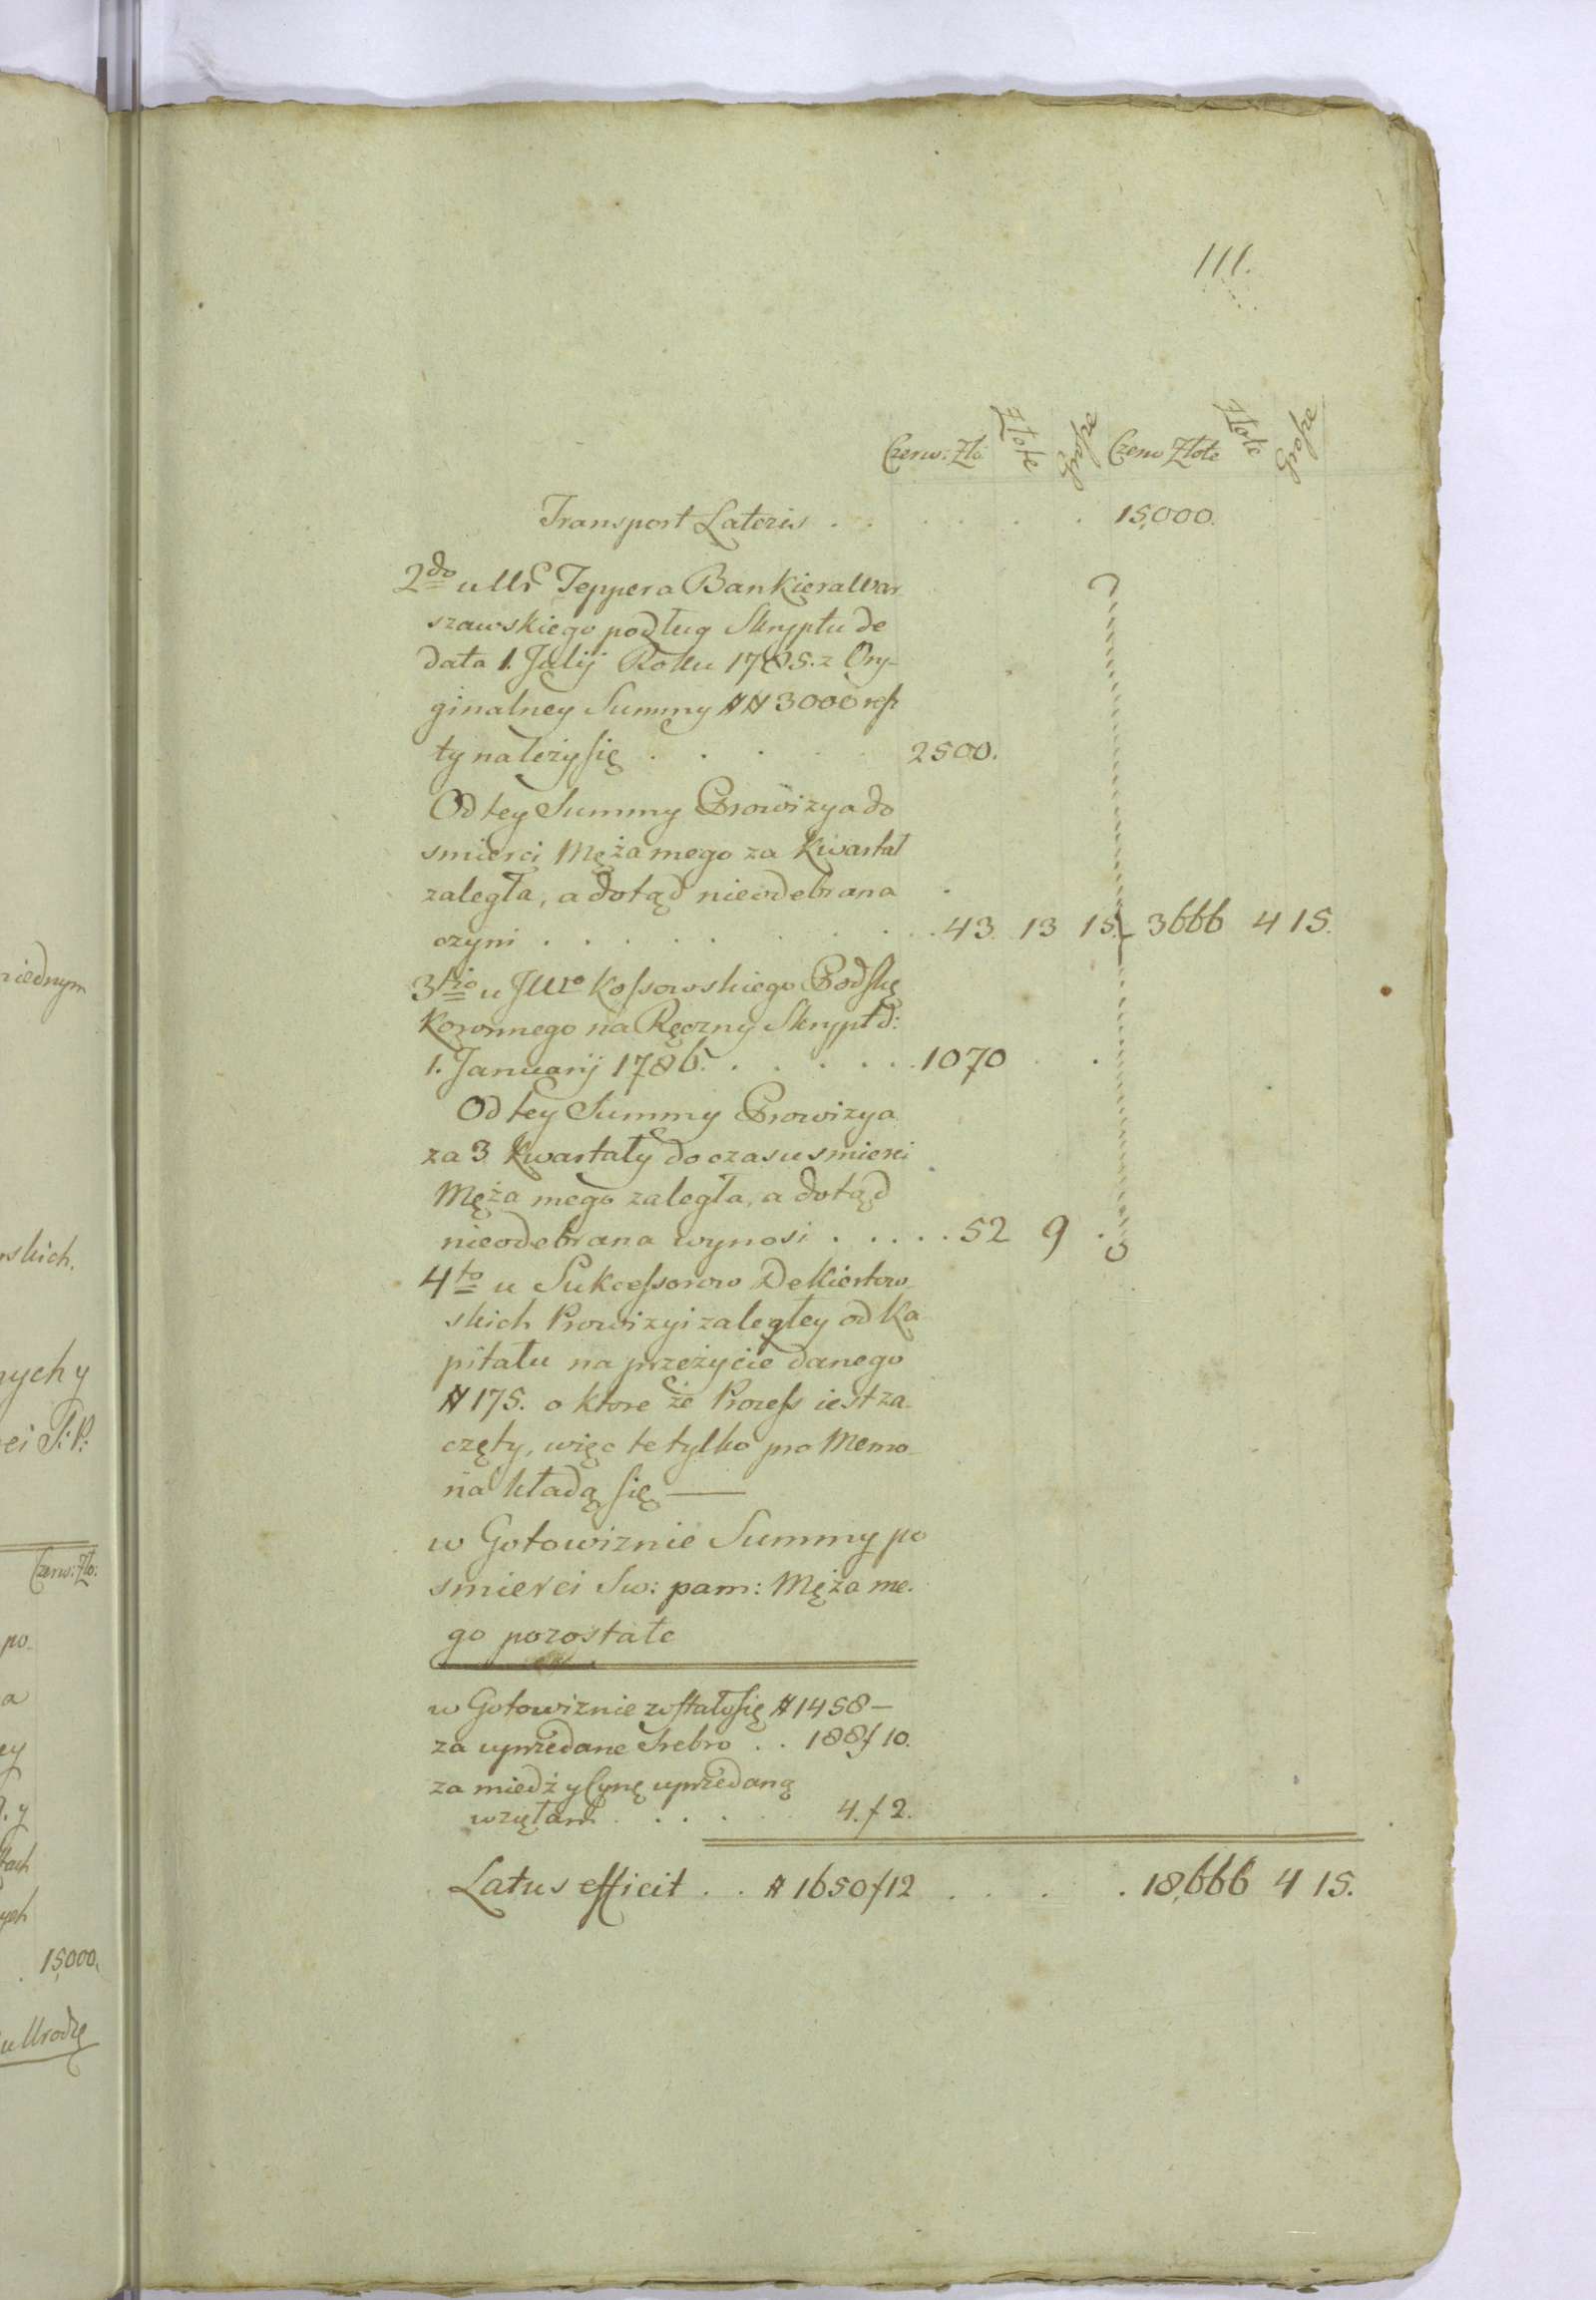 111.
Czerw: Zło: Złote Grosze Czerw Złote Złote Grosze
Transport Lateris . . . . . . 15,000.
2do u Ur Teppera Bankiera War
szawskiego podług Skryptu de
data 1. Julij Roku 1785. z Ory-
ginalney Summy ## 3000 resz
ty należy się . . . . 2500.
Od tey Summy Prowizya do
smierci Męża mego za Kwartał
zaległa, a dotąd nieodebrana
czyni . . . . . . . . 43. 13 15. 3666 4 15.
3tio u JW Kossowskiego Podskę
Koronnego na Ręczny Skrypt d:
1. Januarij 1786. . . . . . 1070
Od tey Summy Prowizya
za 3 Kwartały do czasu smierci
Męża mego zaległa, a dotąd
nieodebrana wynosi . . . . . 52 9 .
4to u Sukcessorow Dekiertow
skich Prowizyi zaległey od Ka
pitału na przeżycie danego
# 175. o ktore że Process iest za-
częty, więc te tylko pro Memo-
ria kładą się —
w Gotowiznie Summy po
smierci Sw: pam: Męża me-
go pozostałe
w Gotowiznie zostało się # 1458 —
za uprzedane Srebro . . 188 f 10.
za miedź y Cynę uprzedaną
wzięłam . . . . . 4. f 2.
Latus efficit . . # 1650 f 12 . . . . 18,666 4 15.
niednym
wskich.
nych y
ei S: P:
Czerw: Zło:
po-
a
ey
y
tach
ych
. 15,000.
u Urodzę